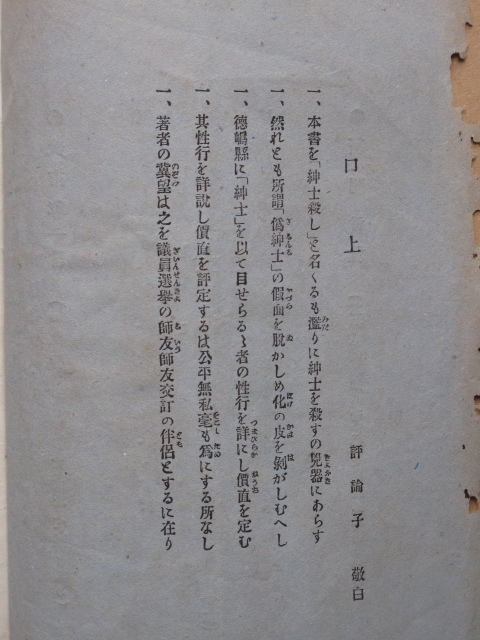 口上
評論子 敬白
一、本書を「紳士殺し」と名くるも濫りに紳士を殺すの兇器にあらす
一、然れとも所謂「僞紳士」の假面を脫かしめ化の皮を剝がしむへし
一、德嶋縣に「紳士」を以て目せらるゝ者の性行を詳にし價直を定む
一、其性行を詳說し價直を評定するは公平無私毫も爲にする所なし
一、著者の冀望は之を議員選擧の師友師友交訂の伴侶とするに在り